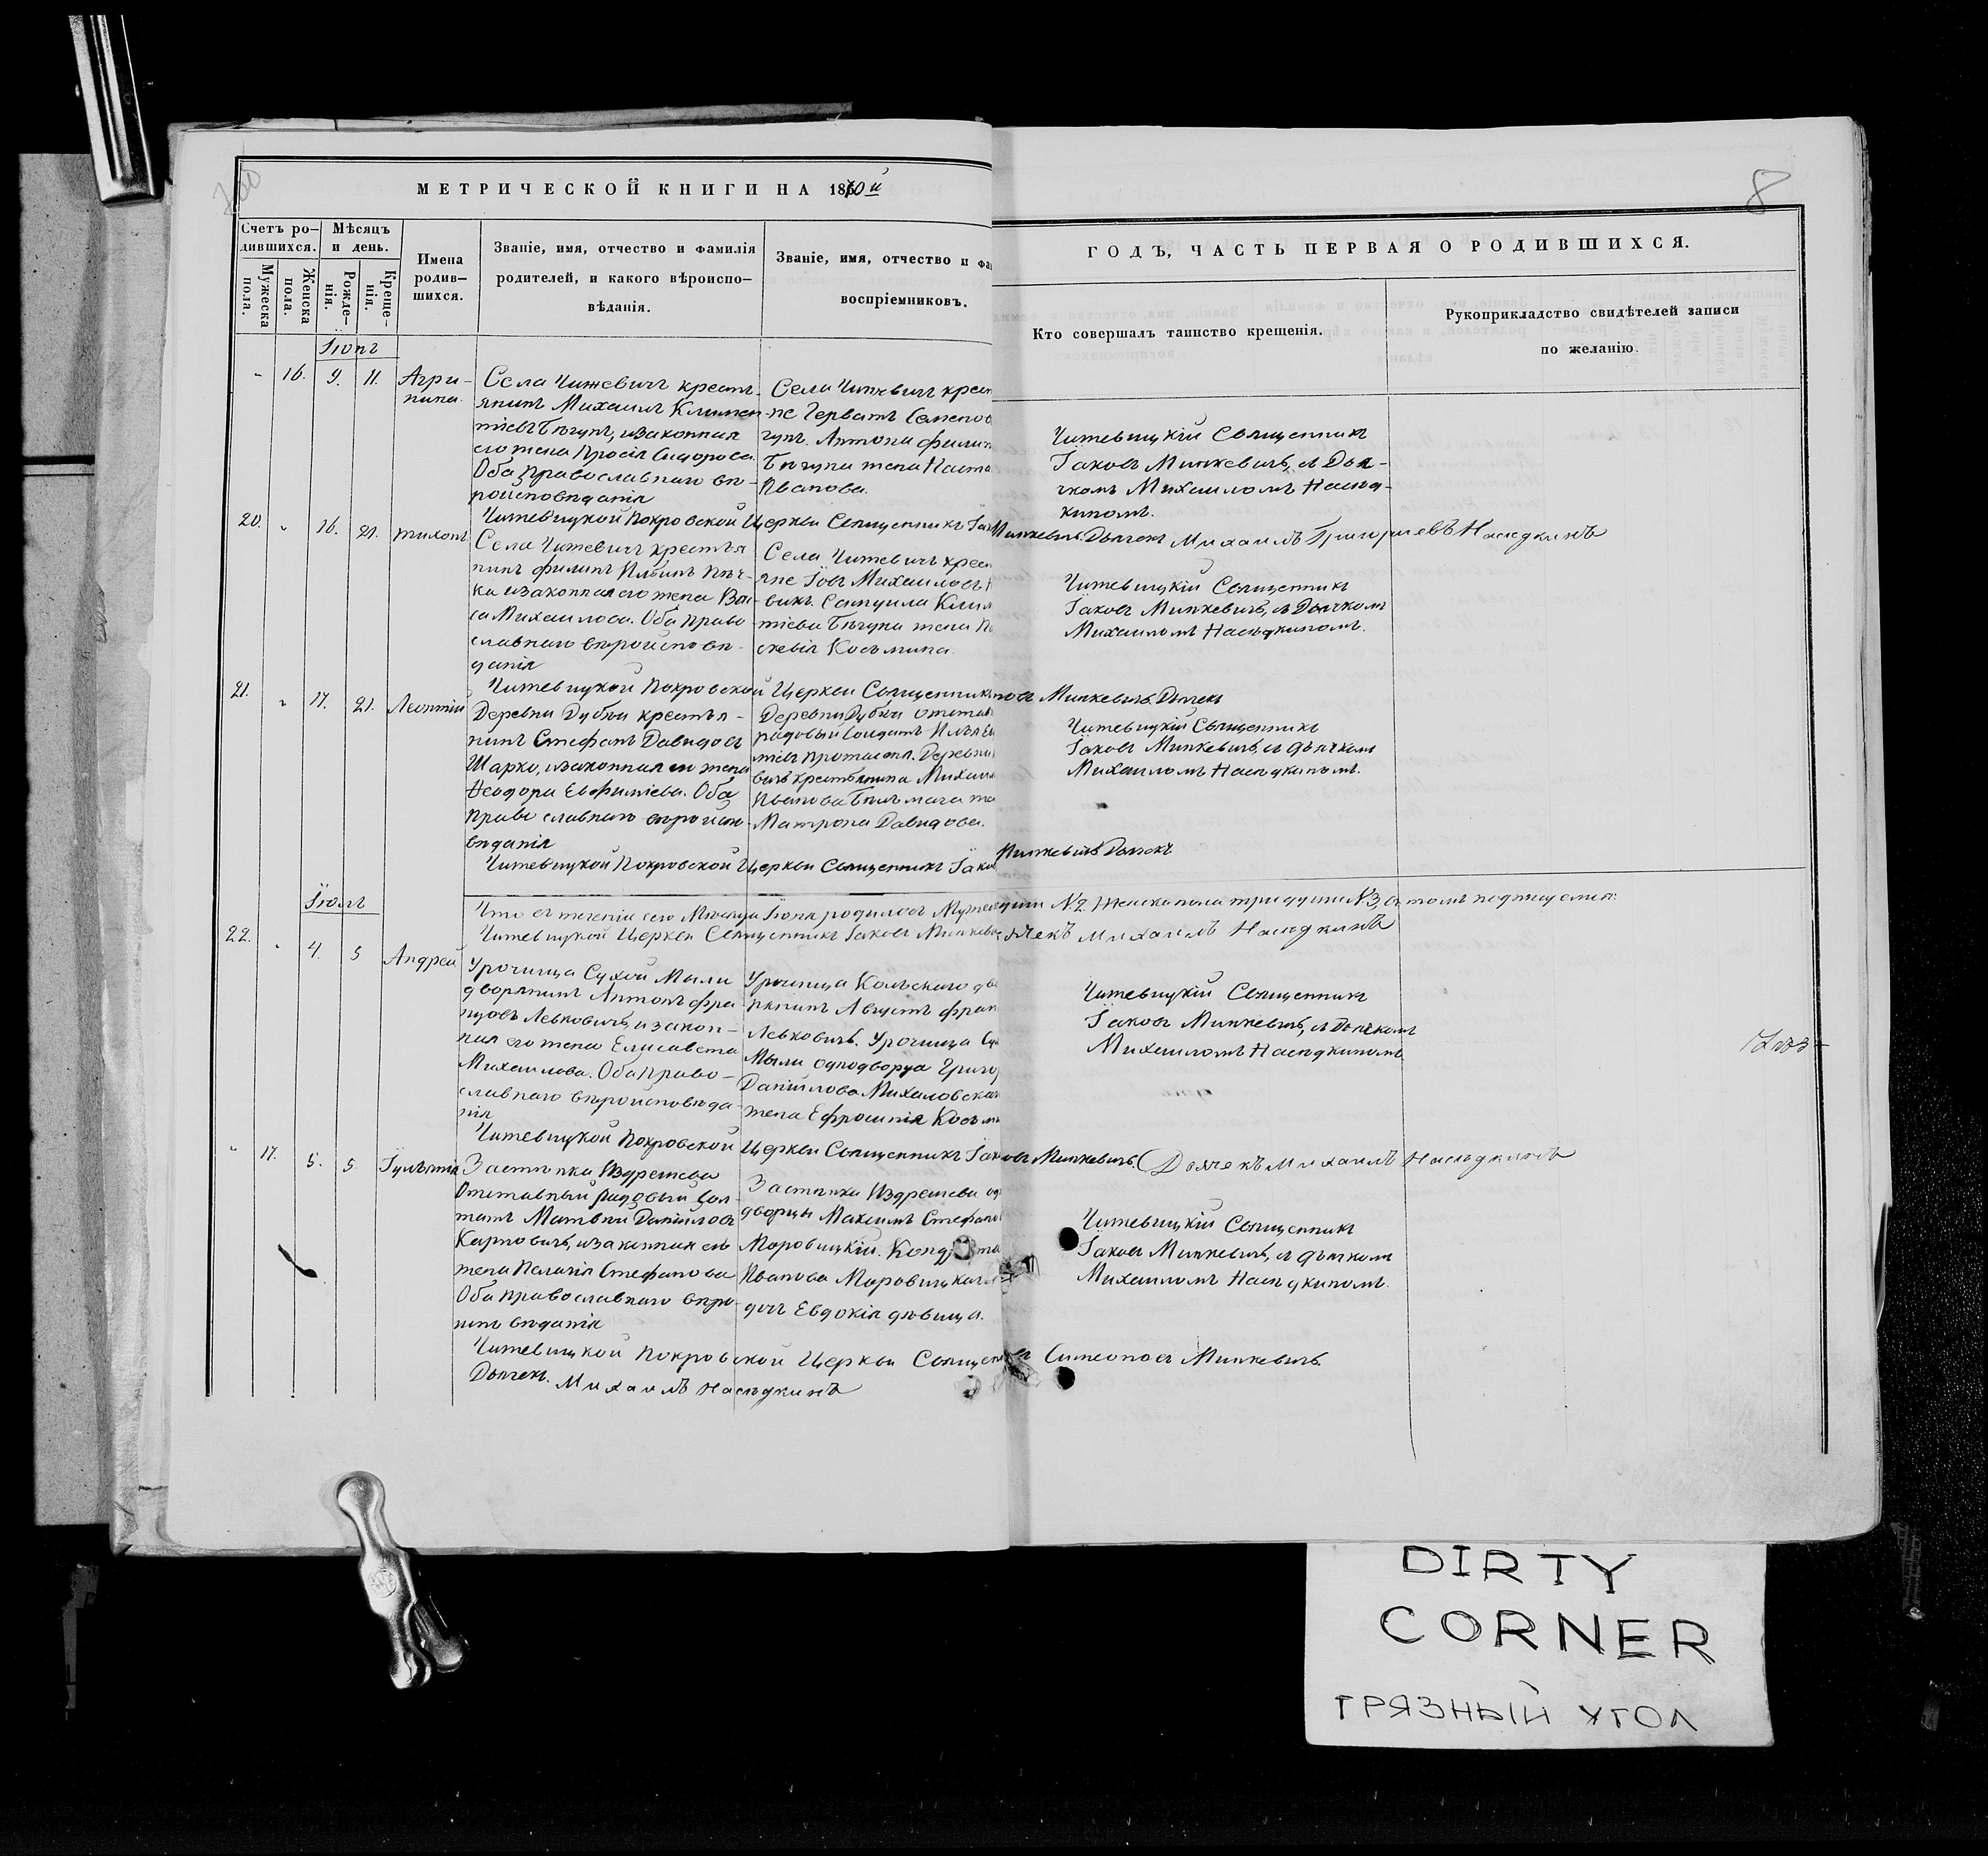 МЕТРИЧЕСКОЙ КНИГИ НА 1870й
Счетъ ро-
дившихся.
Мужеска
пола.
Женска
пола.
Мѣсяцъ
и день.
Рожде-
нія.
Креще-
нія.
Имена
родив-
шихся.
Званіе, имя, отчество и фамилія
родителей, и какого вѣроиспо-
вѣданія.
Званіе, имя, отчество и фа
воспріемниковъ.
8
ГОДЪ, ЧАСТЬ ПЕРВАЯ О РОДИВШИХСЯ.
Кто совершалъ таинство крещенія.
Рукоприкладство свидѣтелей записи
по желанію.
Іюнь
16. 9. 11. Агри-
пина
Села Читевичъ кресть-
янинъ Михаилъ Климен-
тіевъ Бѣгунъ, изаконная
его жена Просія Сидорова.
Оба православнаго вѣ-
роисповѣданія
Села Читевичъ крест
не Герватъ Семенов
гунъ. Антона Филип
Бѣгуна жена Наста
Иванова.
Читевицкій Священникъ
Іаковъ Минкевичъ, съ Дья-
чкомъ Михаиломъ Насѣд-
киномъ.
Читевицкой Покровской Церкви Священникъ Іак Минкевичъ. Дьячекъ Михаилъ Григорьевъ Насѣдкинъ
20. " 16. 21. Тихонъ
Села Читевичъ крестья
нинъ Филипъ Ильинъ Пѣч-
ка изаконная его жена Ва
са Михаилова. Оба право-
славнаго вѣроисповѣ-
данія
Села Читевичъ крес
яне Іовъ Михаиловъ
викъ. Самуила Клим
тіева Бѣгуна жена П
скевія Косьмина.
Читевицкій Священникъ
Іаковъ Минкевичъ, съ Дьячкомъ
Михаиломъ Насѣдкиномъ.
Читевицкой Покровской Церкви Священникъ Минкевичъ. Дьячекъ
21. " 17. 21. Леонтій
Деревни Дубѣи крестья-
нинъ Стефанъ Давидовъ
Шарко, изаконная его жена
Ѳеодора Евфиміева. Оба
православнаго вѣроиспо-
вѣданія
Деревни Дубѣи отстав
рядовый Солдатъ Илья Ев
міевъ Протасеня. Деревни
вичъ крестьянина Михаи
Иванова Бѣльмача же
Матрона Давидова.
Читевицкій Священникъ
Іаковъ Минкевичъ, съ дьячкомъ
Михаиломъ Насѣдкиномъ.
Читевицкой Покровской Церкви Священникъ Іаков Минкевичъ Дьячекъ
Что въ теченіи сего Мѣсяца Іюня родилось Мужес души №2. Женска пола три души №3, въ томъ подписуемся:
Читевицкой Церкви Священникъ Іаковъ Минкеви ячекъ Михаилъ Насѣдкинъ
Іюль
22. " 4. 5 Андрей
Урочища Сухой Мыли
дворянинъ Антонъ Фра
нцовъ Левковичъ, изакон-
ная его жена Елисавета
Михаилова. Оба право-
славнаго вѣроисповѣда-
нія
Урочища Кольскаго дво
рянинъ Августъ Фран
Левковичъ. Урочища Су
Мыли однодворца Григор
Даніилова Михаловскаг
жена Ефросинія Косьми
Читевицкій Священникъ
Іаковъ Минкевичъ, съ Дьячкомъ
Михаиломъ Насѣдкиномъ
Читевицкой Покровской Церкви Священникъ Іаковъ Минкевичъ. Дьячекъ Михаилъ Насѣдкинъ
" 17. 5. 5. Іуліанія
Застѣнка Издрешева
Отставный рядовый Сол-
датъ Матвѣй Даніиловъ
Карповичъ, изаконная его
жена Пелагія Стефанова
Оба православнаго вѣро-
исповѣданія
Застѣнка Издрешева од
дворцы Максимъ Стефано
Моровицкій. Кондрата
Иванова Моровицкаго
дочь Евдокія дѣвица.
Читевицкій Священникъ
Іаковъ Минкевичъ, съ дьячкомъ
Михаиломъ Насѣдкиномъ.
Читевицкой Покровской Церкви Священ Симеоновъ Минкевичъ.
Дьячекъ. Михаилъ Насѣдкинъ
DIRTY
CORNER
ГРЯЗНЫЙ УГОЛ